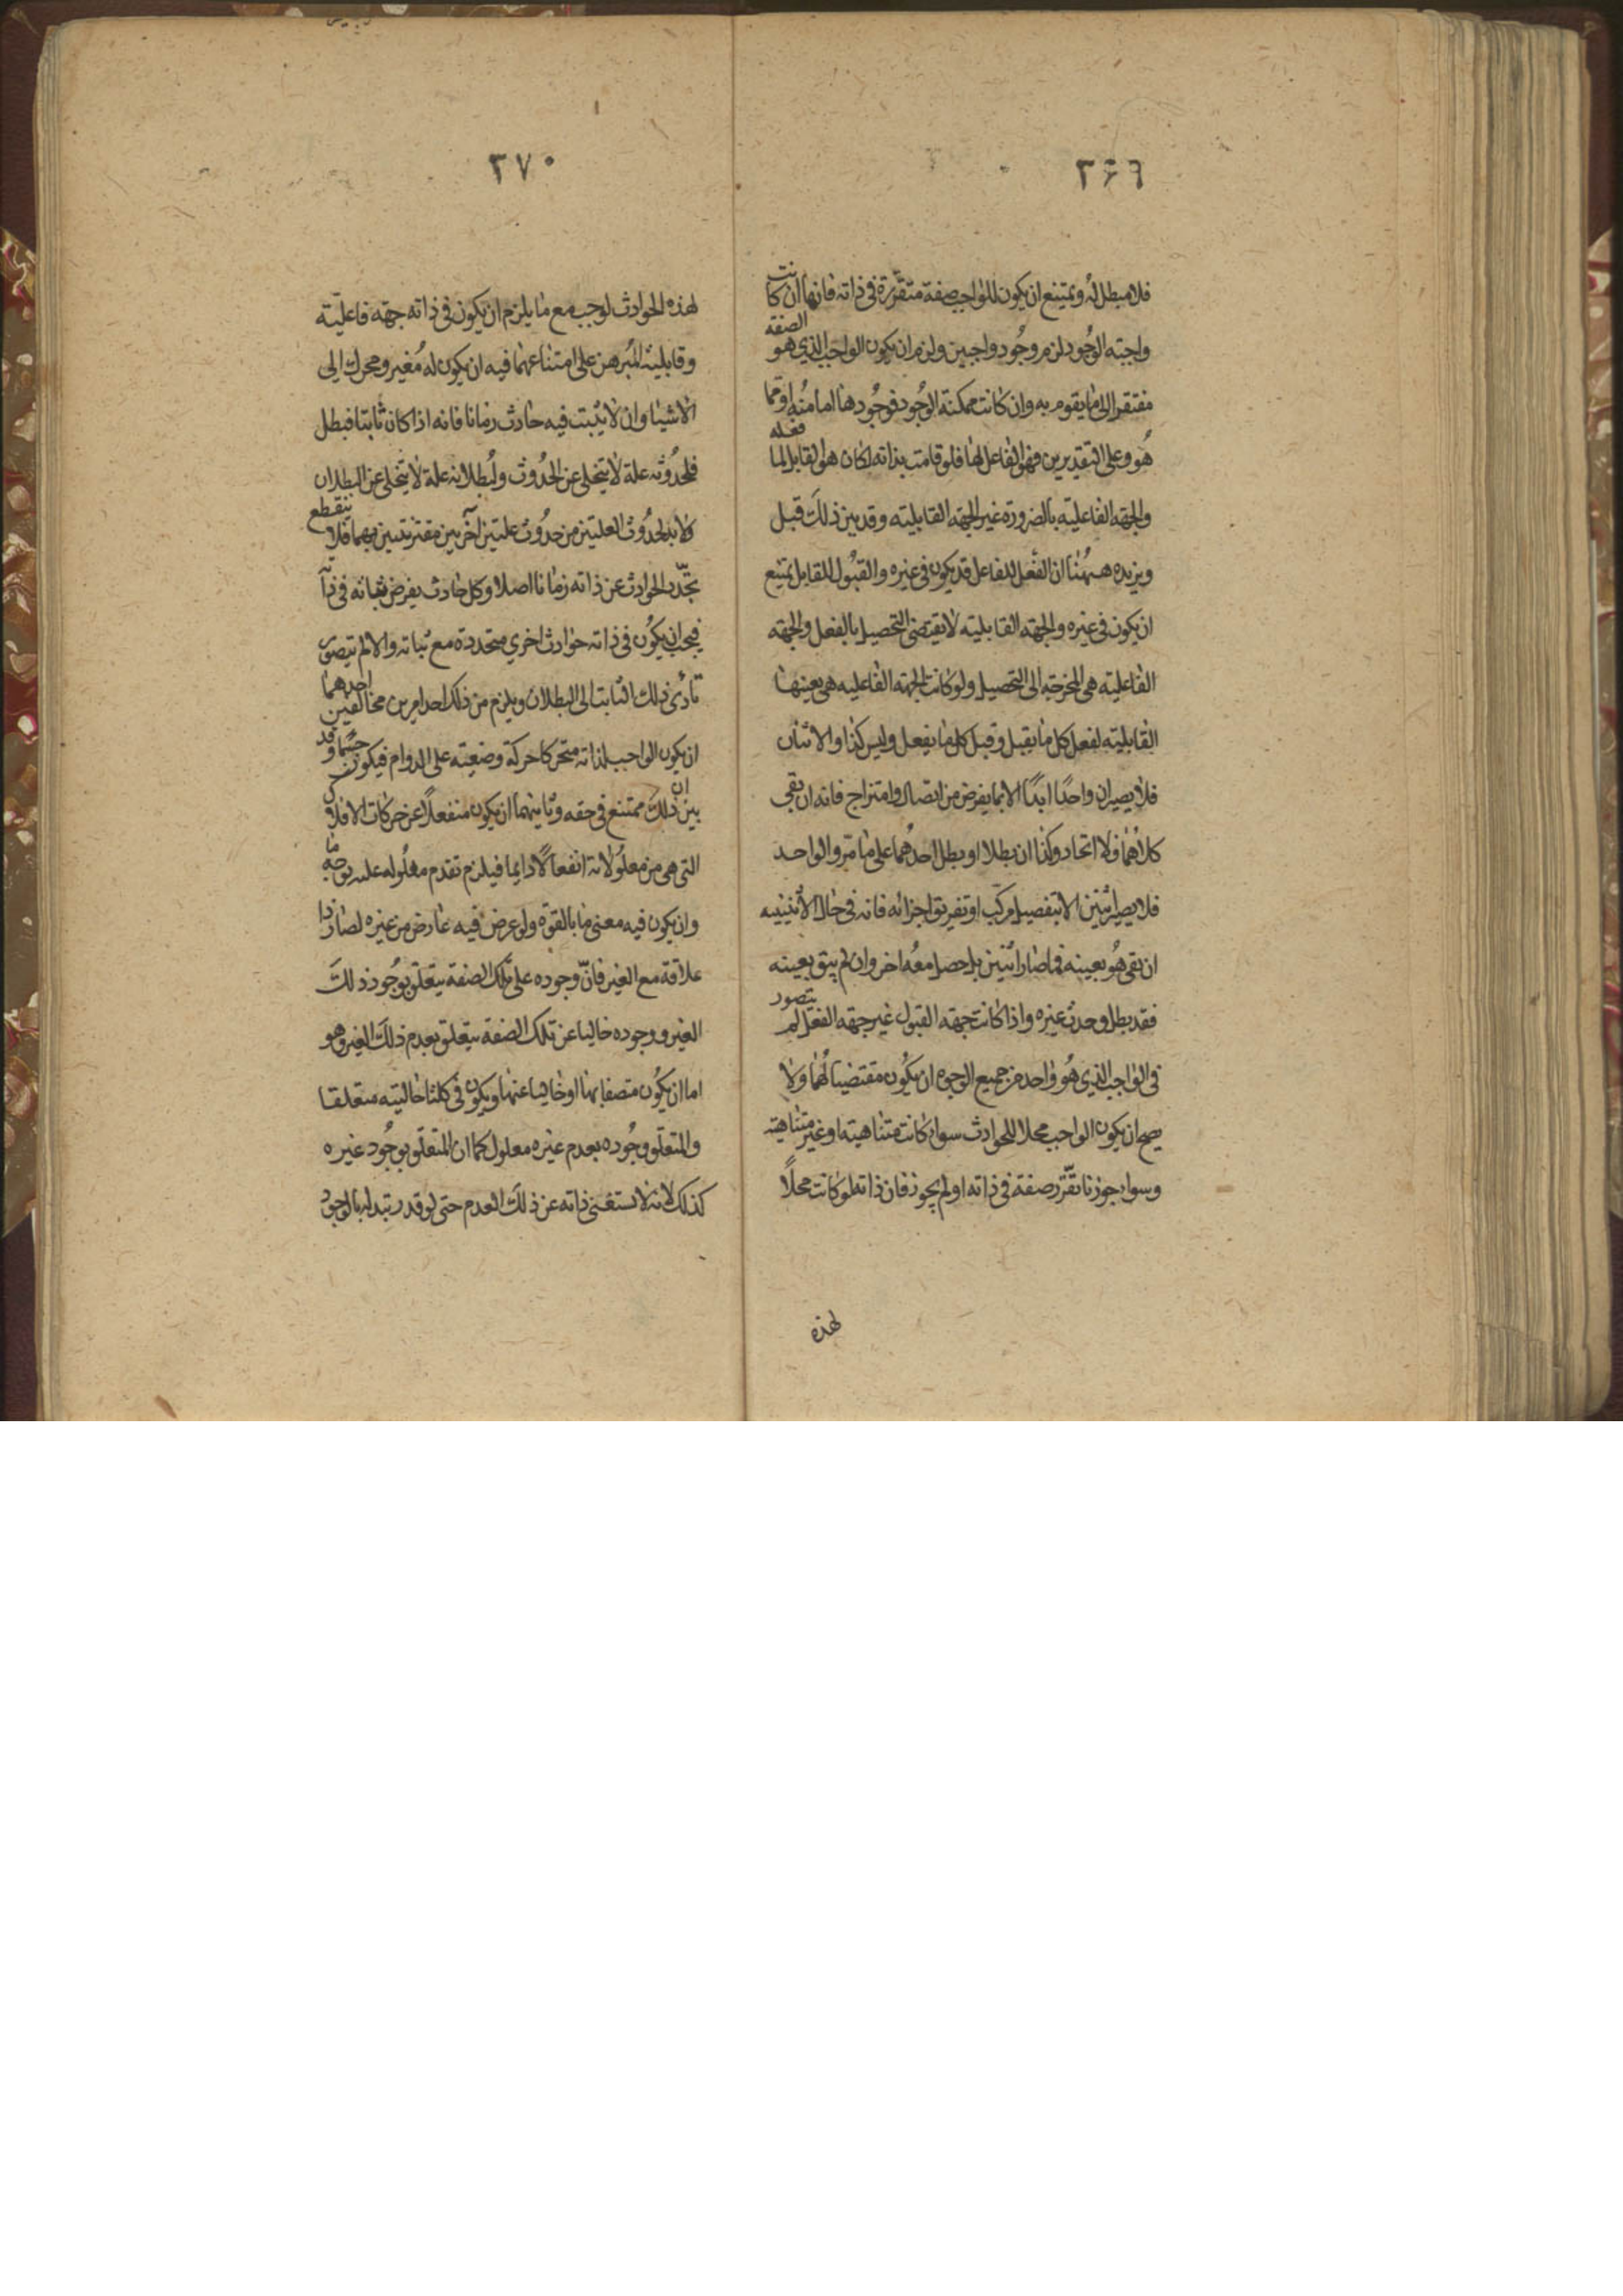 ٣٦٩
فلا مبطل له ويمتنع ان يكون للواجب صفة متقررة فى ذاته فانها ان كانت
واجبته الوجود لزم وجود واجبين ولزم ان يكون الواجب الذي هو الصفة
مفتقر الى ما يقوم به وان كانت ممكنته الوجود فوجودها اما منه او مما
هو وعلى التقديرين فهو الفاعل لها فلو قامت بذاته لكان هو القابل لما فعله
والجهه الفاعليته بالضرورة غير الجهه القابليته وقد بين ذلك قبل
ويزيده ههنا ان الفعل للفاعل قد يكون فى غيره والقبول للقابل يمتنع
ان يكون فى غيره والجهه القابليته لا يقتضى التحصيل بالفعل والجهه
الفاعليته هى المخرجه الى التحصيل ولو كانت الجهه الفاعليه هى بعينها
القابليته لفعل كل ما يقبل وقبل كل ما يفعل وليس كذا والاثنان
فلا يصيران واحدًا ابدًا الا بما يفرض من اتصال وامتزاج فانه ان بقى
كلاهما فلا اتحاد وكذا ان بطلا او بطل احدهما على ما مر والواحد
فلا يصير اثنين الا بتفصيل مركب او تفريق اجزائه فانه فى حال الاثنينيه
ان بقى هو بعينه فما صار اثنين بل حصل معه اخر وان لم يبق بعينه
فقد بطل وحدث غيره واذا كانت جهه القبول غير جهه الفعل لم يتصور
فى الواجب الذي هو واحد من جميع الوجوه ان يكون مقتضيا لهما ولا
يصح ان يكون الواجب محلا للحوادث سواء كانت متناهيته او غير متناهيته
وسواء جوزنا تقرر صفة فى ذاته او لم يجوز فان ذاته لو كانت محلًا
لهذه
٣٧٠
لهذه الحوادث لوجب مع ما يلزم ان يكون فى ذاته جهه فاعليته
وقابليته المبرهن على امتناعهما فيه ان يكون له مغير ومحرك الى
الاشيا وان لا يثبت فيه حادث زمانا فانه اذا كان ثابتا فبطل
فلحدوثه علة لا يتخلى عن الحدوث ولبطلانه علة لا يتخلى عن البطلان
ولا بد لحدوث العلتين من حدوث علتين آخريين مقترنتين بهما فلا ينقطع
تجدد الحوادث عن ذاته زمانا اصلا وكل حادث يفرض ثباته فى ذا
فيجب ان يكون فى ذاته حوادث اخري متجددة مع ثباته والا لم يتصور
تادى ذلك الثابت الى البطلان ويلزم من ذلك احد امرين محالين احدهما
ان يكون الواجب لذاته متحركا حركة وضعيته على الدوام فيكون جسما وقد
بين ان ذلك ممتنع فى حقه وثانيهما ان يكون منفعلًا عن حركات الافلاك
التى هى من معلولاته انفعالًا دايما فيلزم تقدم معلوله عليه بوجه ما
وان يكون فيه معنى ما بالقوة ولو عرض فيه عارض من غيره لصار ذا
علاقة مع الغير فانّ وجوده على تلك الصفة يتعلق بوجود ذلك
الغير ووجوده خاليا عن تلك الصفة يتعلق بعدم ذلك الغير وهو
اما ان يكون متصفا بها او خاليا عنها ويكون فى كلتا حاليته متعلقا
والمتعلق وجوده بعدم غيره معلول كما ان المتعلق بوجود غيره
كذلك لانه لا تستغنى ذاته عن ذلك العدم حتى لو قدر تبدله بالوجود